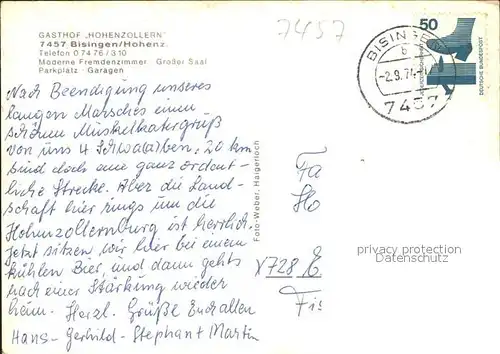 7457
GASTHOF „HOHENZOLLERN"
7457 Bisingen/Hohenz.
Telefon 0 74 76 / 3 10
Moderne Fremdenzimmer Großer Saal
Parkplatz · Garagen
BISINGEN
b
-2.9.74
7457
50
DEUTSCHE BUNDESPOST
Nach Beendigung unseres
langen Marsches einen
schönen Muskelkatergruß
von uns 4 Schwaalben. 20 km
sind doch eine ganz ordent-
liche Strecke. Aber die Land-
schaft hier rings um die
Hohenzollernburg ist herrlich.
Jetzt sitzen wir hier bei einem
kühlen Bier, und dann gehts
nach einer Stärkung wieder
heim. Herzl. Grüße Euch allen
Hans - Gerhild - Stephan + Martin
Foto-Weber, Haigerloch
Fa
Ho
privacy protection
Datenschutz
728
Fis